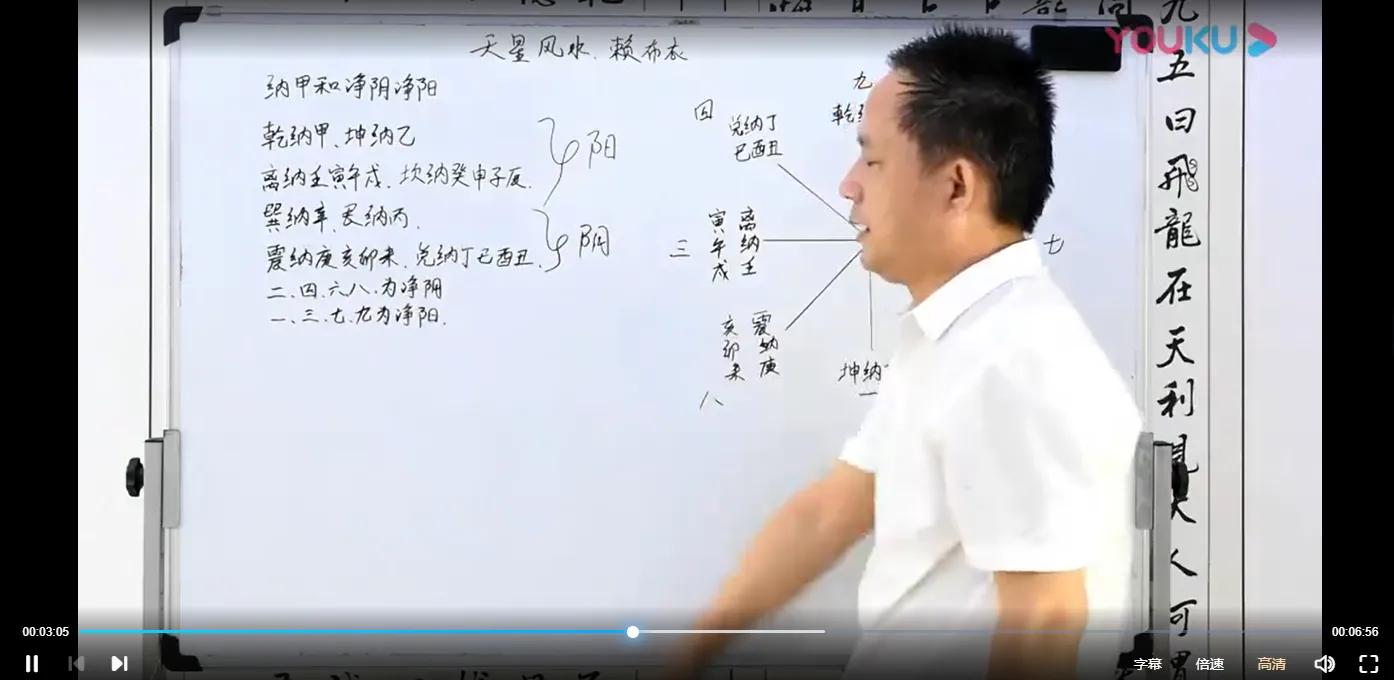 天星风水、赖布衣
纳甲和净阴净阳
乾纳甲、坤纳乙
离纳壬寅午戌、坎纳癸申子辰.
阳
巽纳辛、艮纳丙、
震纳庚亥卯未、兑纳丁巳酉丑、
阴
二、四、六、八、为净阴
一、三、七、九为净阳.
九
乾纳
四
兑纳丁
巳酉丑
三
寅午戌
离纳壬
七
亥卯未
震纳庚
八
坤纳
一
五曰飛龍在天利見大人可
YOUKU
00:03:05
00:06:56
字幕
倍速
高清